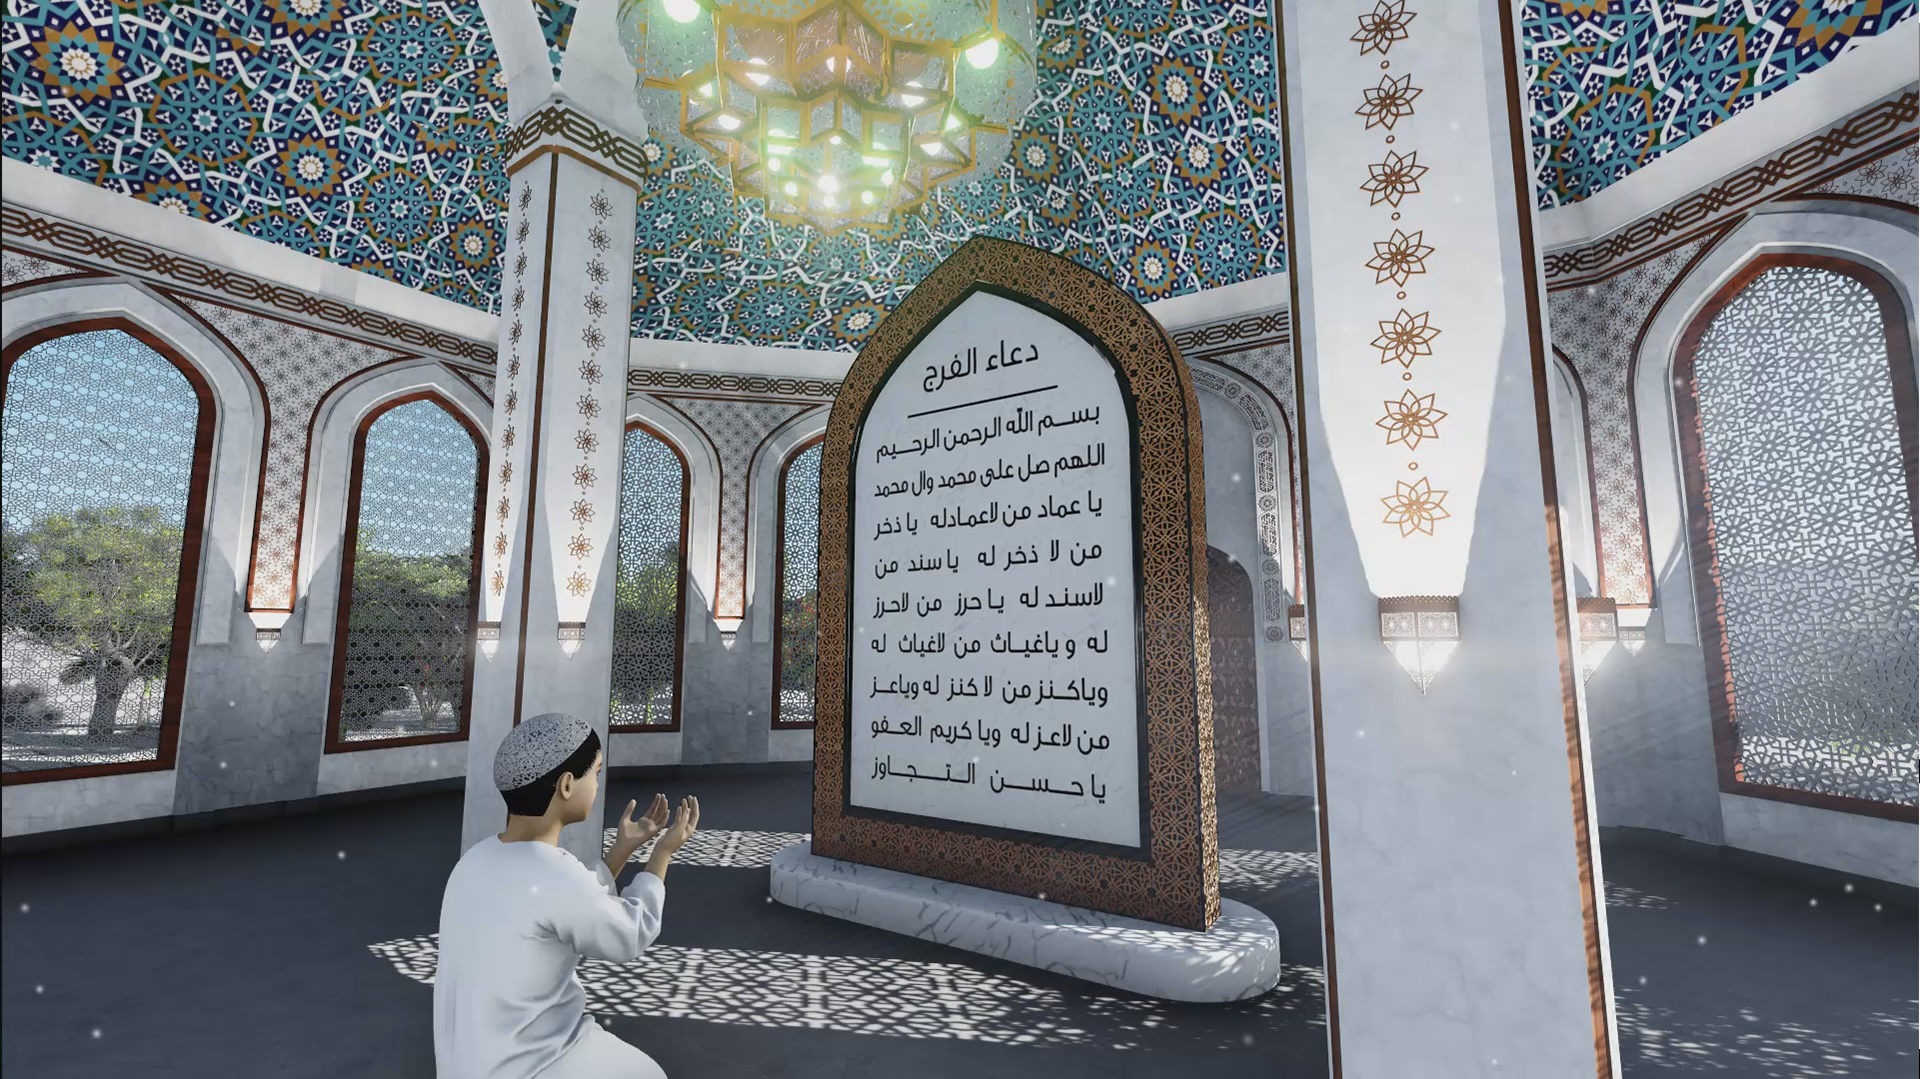 دعاء الفرج
بسم الله الرحمن الرحيم
اللهم صل على محمد وال محمد
يا عماد من لاعمادله يا ذخر
من لا ذخر له يا سند من
لاسند له يا حرز من لاحرز
له و ياغياث من لاغياث له
وياكنز من لا كنز له وياعز
من لاعز له ويا كريم العفو
يا حسن التجاوز